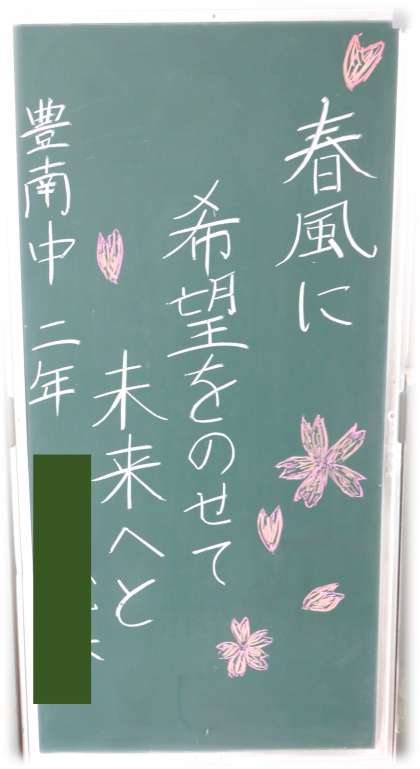 春風に
希望をのせて
未来へと
豊南中 二年